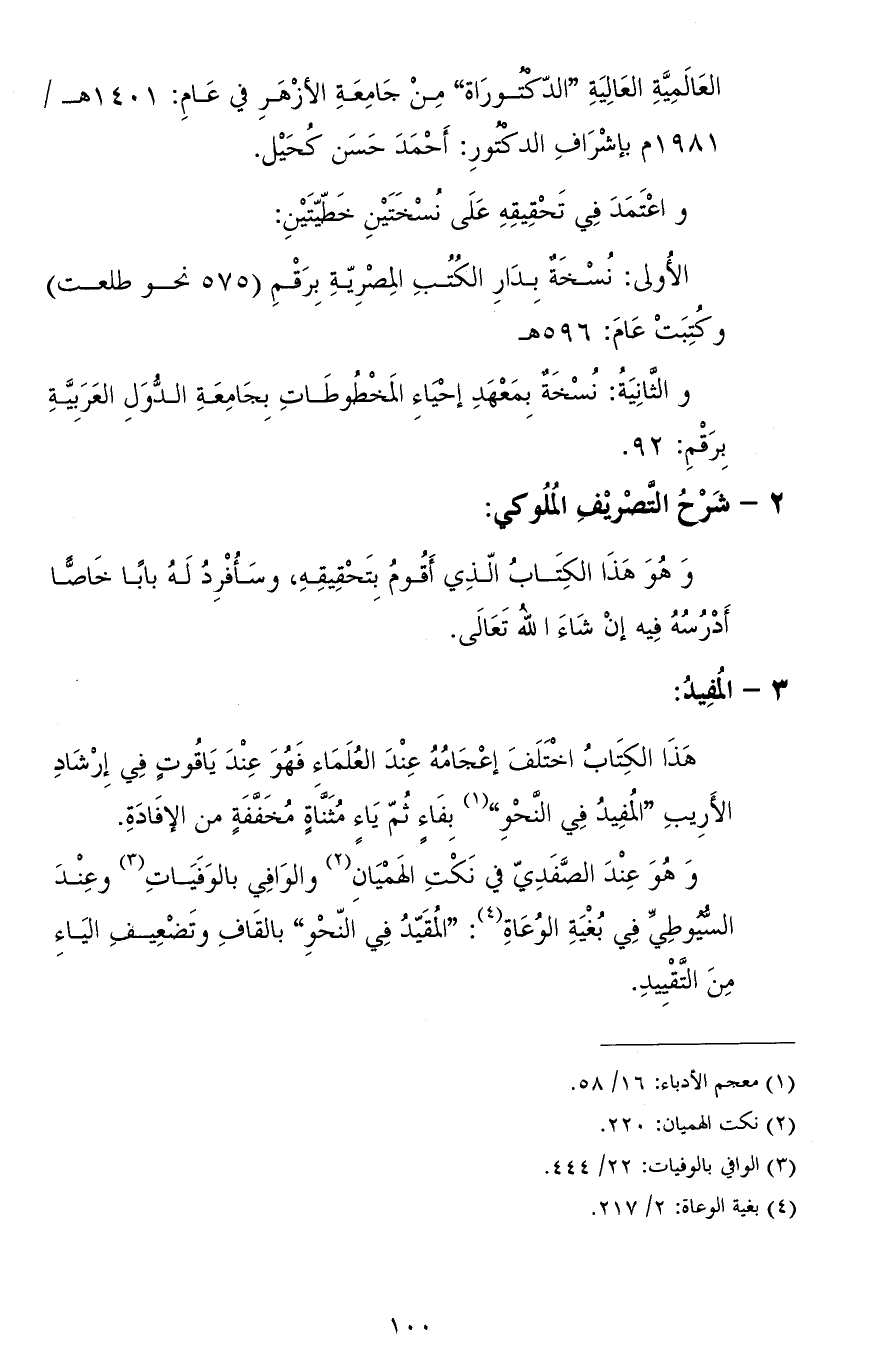 العَالَمِيَّةِ العَالِيَةِ ”الدّكْتُورَاة“ مِنْ جَامِعَةِ الأزْهَرِ في عَامِ: ١٤٠١هـ /
١٩٨١م بإشْرَافِ الدكْتُورِ: أَحْمَدَ حَسَن كُحَيْل.
و اعْتَمَدَ فِي تَحْقِيقِهِ عَلَى نُسْخَتَيْنِ خَطِّيّتَيْنِ:
الأُولى: نُسْخَةٌ بِدَارِ الكُتُبِ المِصْرِيّةِ بِرَقْمِ (٥٧٥ نحو طلعت)
وكُتِبَتْ عَامَ: ٥٩٦هـ
و الثَّانِيَةُ: نُسْخَةٌ بِمَعْهَدِ إحْيَاءِ المَخْطُوطَاتِ بِجَامِعَةِ الدُّوَلِ العَرَبِيَّةِ
بِرَقْمِ: ٩٢.
٢ – شَرْحُ التَّصْرِيْفِ المُلُوكي:
وَ هُوَ هَذَا الكِتَابُ الّذِي أَقُومُ بِتَحْقِيقِهِ، وسَأُفْرِدُ لَهُ بابًا خَاصًّا
أَدْرُسُهُ فِيه إنْ شَاءَ اللهُ تَعَالَى.
٣ – المُفِيدُ:
هَذَا الكِتَابُ اخْتَلَفَ إعْجَامُهُ عِنْدَ العُلَمَاءِ فَهُوَ عِنْدَ يَاقُوتٍ فِي إرْشَادِ
الأَرِيبِ ”المُفِيدُ فِي النَّحْوِ“(١) بِفَاءٍ ثُمّ يَاءٍ مُثَنَّاةٍ مُخَفَّفَةٍ من الإفَادَةِ.
وَ هُوَ عِنْدَ الصَّفَدِيّ في نَكْتِ الهَمْيَانِ(٢) والوَافِي بالوَفَيَاتِ(٣) وعِنْدَ
السُّيُوطِيِّ فِي بُغْيَةِ الوُعَاةِ(٤): ”المُقَيّدُ فِي النّحْوِ“ بالقَافِ وتَضْعِيفِ اليَاءِ
مِنَ التَّقْيِيدِ.
(١) معجم الأدباء: ١٦/ ٥٨.
(٢) نكت الهميان: ٢٢٠.
(٣) الوافي بالوفيات: ٢٢/ ٤٤٤.
(٤) بغية الوعاة: ٢/ ٢١٧.
١٠٠